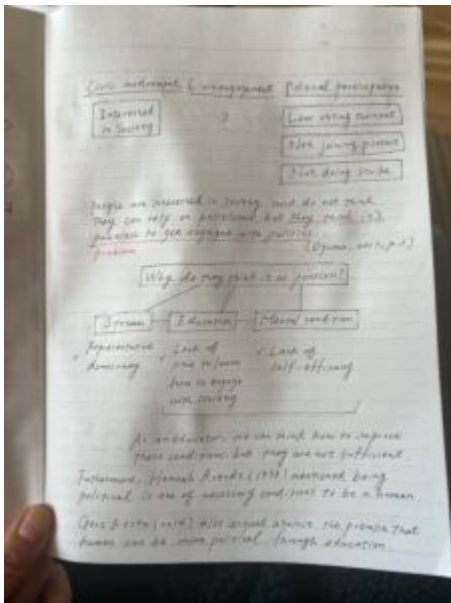 Civic involvement Civic engagement Political participation
Interested in Society
?
Low voting turnout
Not joining protest
Not doing strike
People are interested in society, and do not think
they can rely on politicians, but they think it's
pointless to get engaged with politics.
problem
Why do they think it as pointless?
System Education Mental condition
Representative democracy
Lack of time to learn how to engage with society
Lack of self-efficacy
As an educator, we can think how to improve
these conditions, but they are not sufficient
Furthermore, Hannah Arendt (1958) mentioned being
political is one of necessary conditions to be a human.
Gert Biesta also argued against the premise that
human can be more political through education